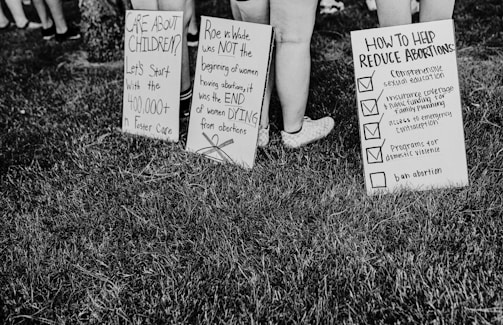 CARE ABOUT
CHILDREN?
Let's Start
With the
400,000+
in Foster Care
Roe v. Wade
was NOT the
beginning of women
having abortions, it
was the END
of women DYING
from abortions
HOW TO HELP
REDUCE ABORTIONS:
Comprehensive
sexual education
insurance coverage
& public funding for
family planning
access to emergency
contraception
Programs for
domestic violence
ban abortion